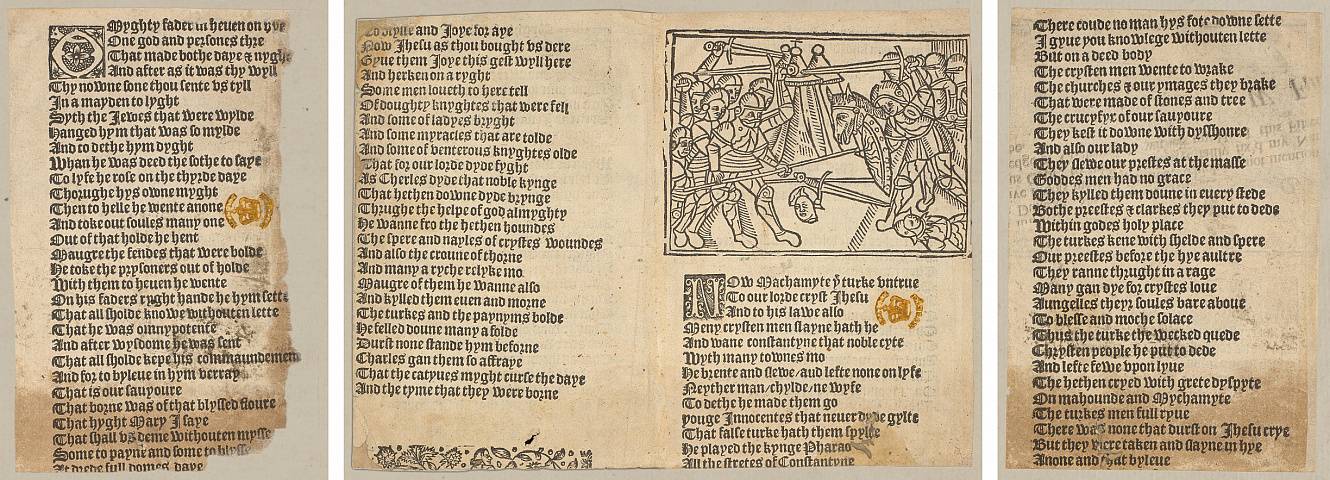 OMyghty fader in heuen on hye
One god and persones thre
That made bothe daye & nyght
And after as it was thy wyll
Thyn owne sone thou sente vs tyll
In a mayden to lyght
Syth the Jewes that were wylde
Hanged hym that was so mylde
And to dethe hym dyght
Whan he was deed the sothe to saye
To lyfe he rose on the thyrde daye
Thorughe hys owne myght
Then to helle he wente anone
And toke out soules many one
Out of that holde he hent
Maugre the fendes that were bolde
He toke the prysoners out of holde
With them to heuen he wente
On his faders ryght hande he hym sette
That all sholde knowe withouten lette
That he was omnypotente
And after wysdome he was sent
That all sholde kepe his commaundement
And for to byleue in hym verray
That is our sauyoure
That borne was of that blyssed floure
That hyght Mary I saye
That shall vs deme withouten mysse
Some to payne and some to blysse
At drede full domes daye
To blysse and Joye for aye
Now Jhesu as thou bought vs dere
Gyue them Joye this gest wyll here
And herken on a ryght
Some men loueth to here tell
Of doughty knyghtes that were fell
And some of ladyes bryght
And some myracles that are tolde
And some of venterous knyghtes olde
That for our lorde dyde fyght
As Cherles dyde that noble kynge
That hethen downe dyde brynge
Thrughe the helpe of god almyghty
He wanne fro the hethen houndes
The spere and nayles of crystes woundes
And also the croune of thorne
And many a ryche relyke mo
Maugre of them he wanne also
And kylled them euen and morne
The turkes and the paynyms bolde
He felled doune many a folde
Durst none stande hym beforne
Charles gan them so affraye
That the catyues myght curse the daye
And the tyme that they were borne
NOw Machamyte yͤ turke vntrue
To our lorde cryst Jhesu
And to his lawe also
Meny crysten men slayne hath he
And wane constantyne that noble cyte
Wyth many townes mo
He brente and slewe/and lefte none on lyfe
Neyther man/chylde/ne wyfe
To dethe he made them go
yonge Innocentes that neuer dyde gylte
That false turke hath them spylte
He played the kynge Pharao
All the stretes of Constantyne
There coude no man hys fote downe sette
I gyue you knowlege withouten lette
But on a deed body
The crysten men wente to wrake
The churches & our ymages they brake
That were made of stones and tree
The crucyfyx of our sauyoure
They kest it downe with dysshonre
And also our lady
They slewe our prestes at the masse
Goddes men had no grace
They kylled them doune in euery stede
Bothe preestes & clarkes they put to dede
Within godes holy place
The turkes kene with shelde and spere
Our preestes before the hye aultre
They ranne thrught in a rage
Many gan dye for crystes loue
Aungelles theyr soules bare aboue
To blesse and moche solace
Thus the turke the wecked quede
Chrysten people he put to dede
And lefte fewe vpon lyue
The hethen cryed with grete dyspyte
On mahounde and Mychamyte
The turkes men full ryue
There was none that durst on Jhesu crye
But they were taken and slayne in hye
Anone and that byleue